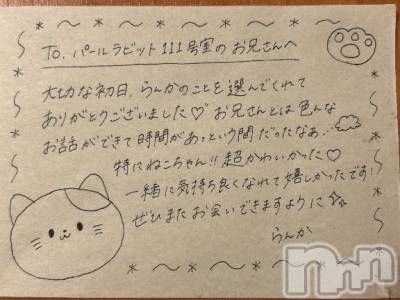 To. パールラビット111号室のお兄さんへ
大切な初日、らんかのことを選んでくれて
ありがとうございました♡お兄さんとは色んな
お話ができて時間があっという間だったなぁ...
特にねこちゃん!!超かわいかった♡
一緒に気持ち良くなれて嬉しかったです!
ぜひまたお会いできますように☆
らんか
nnn